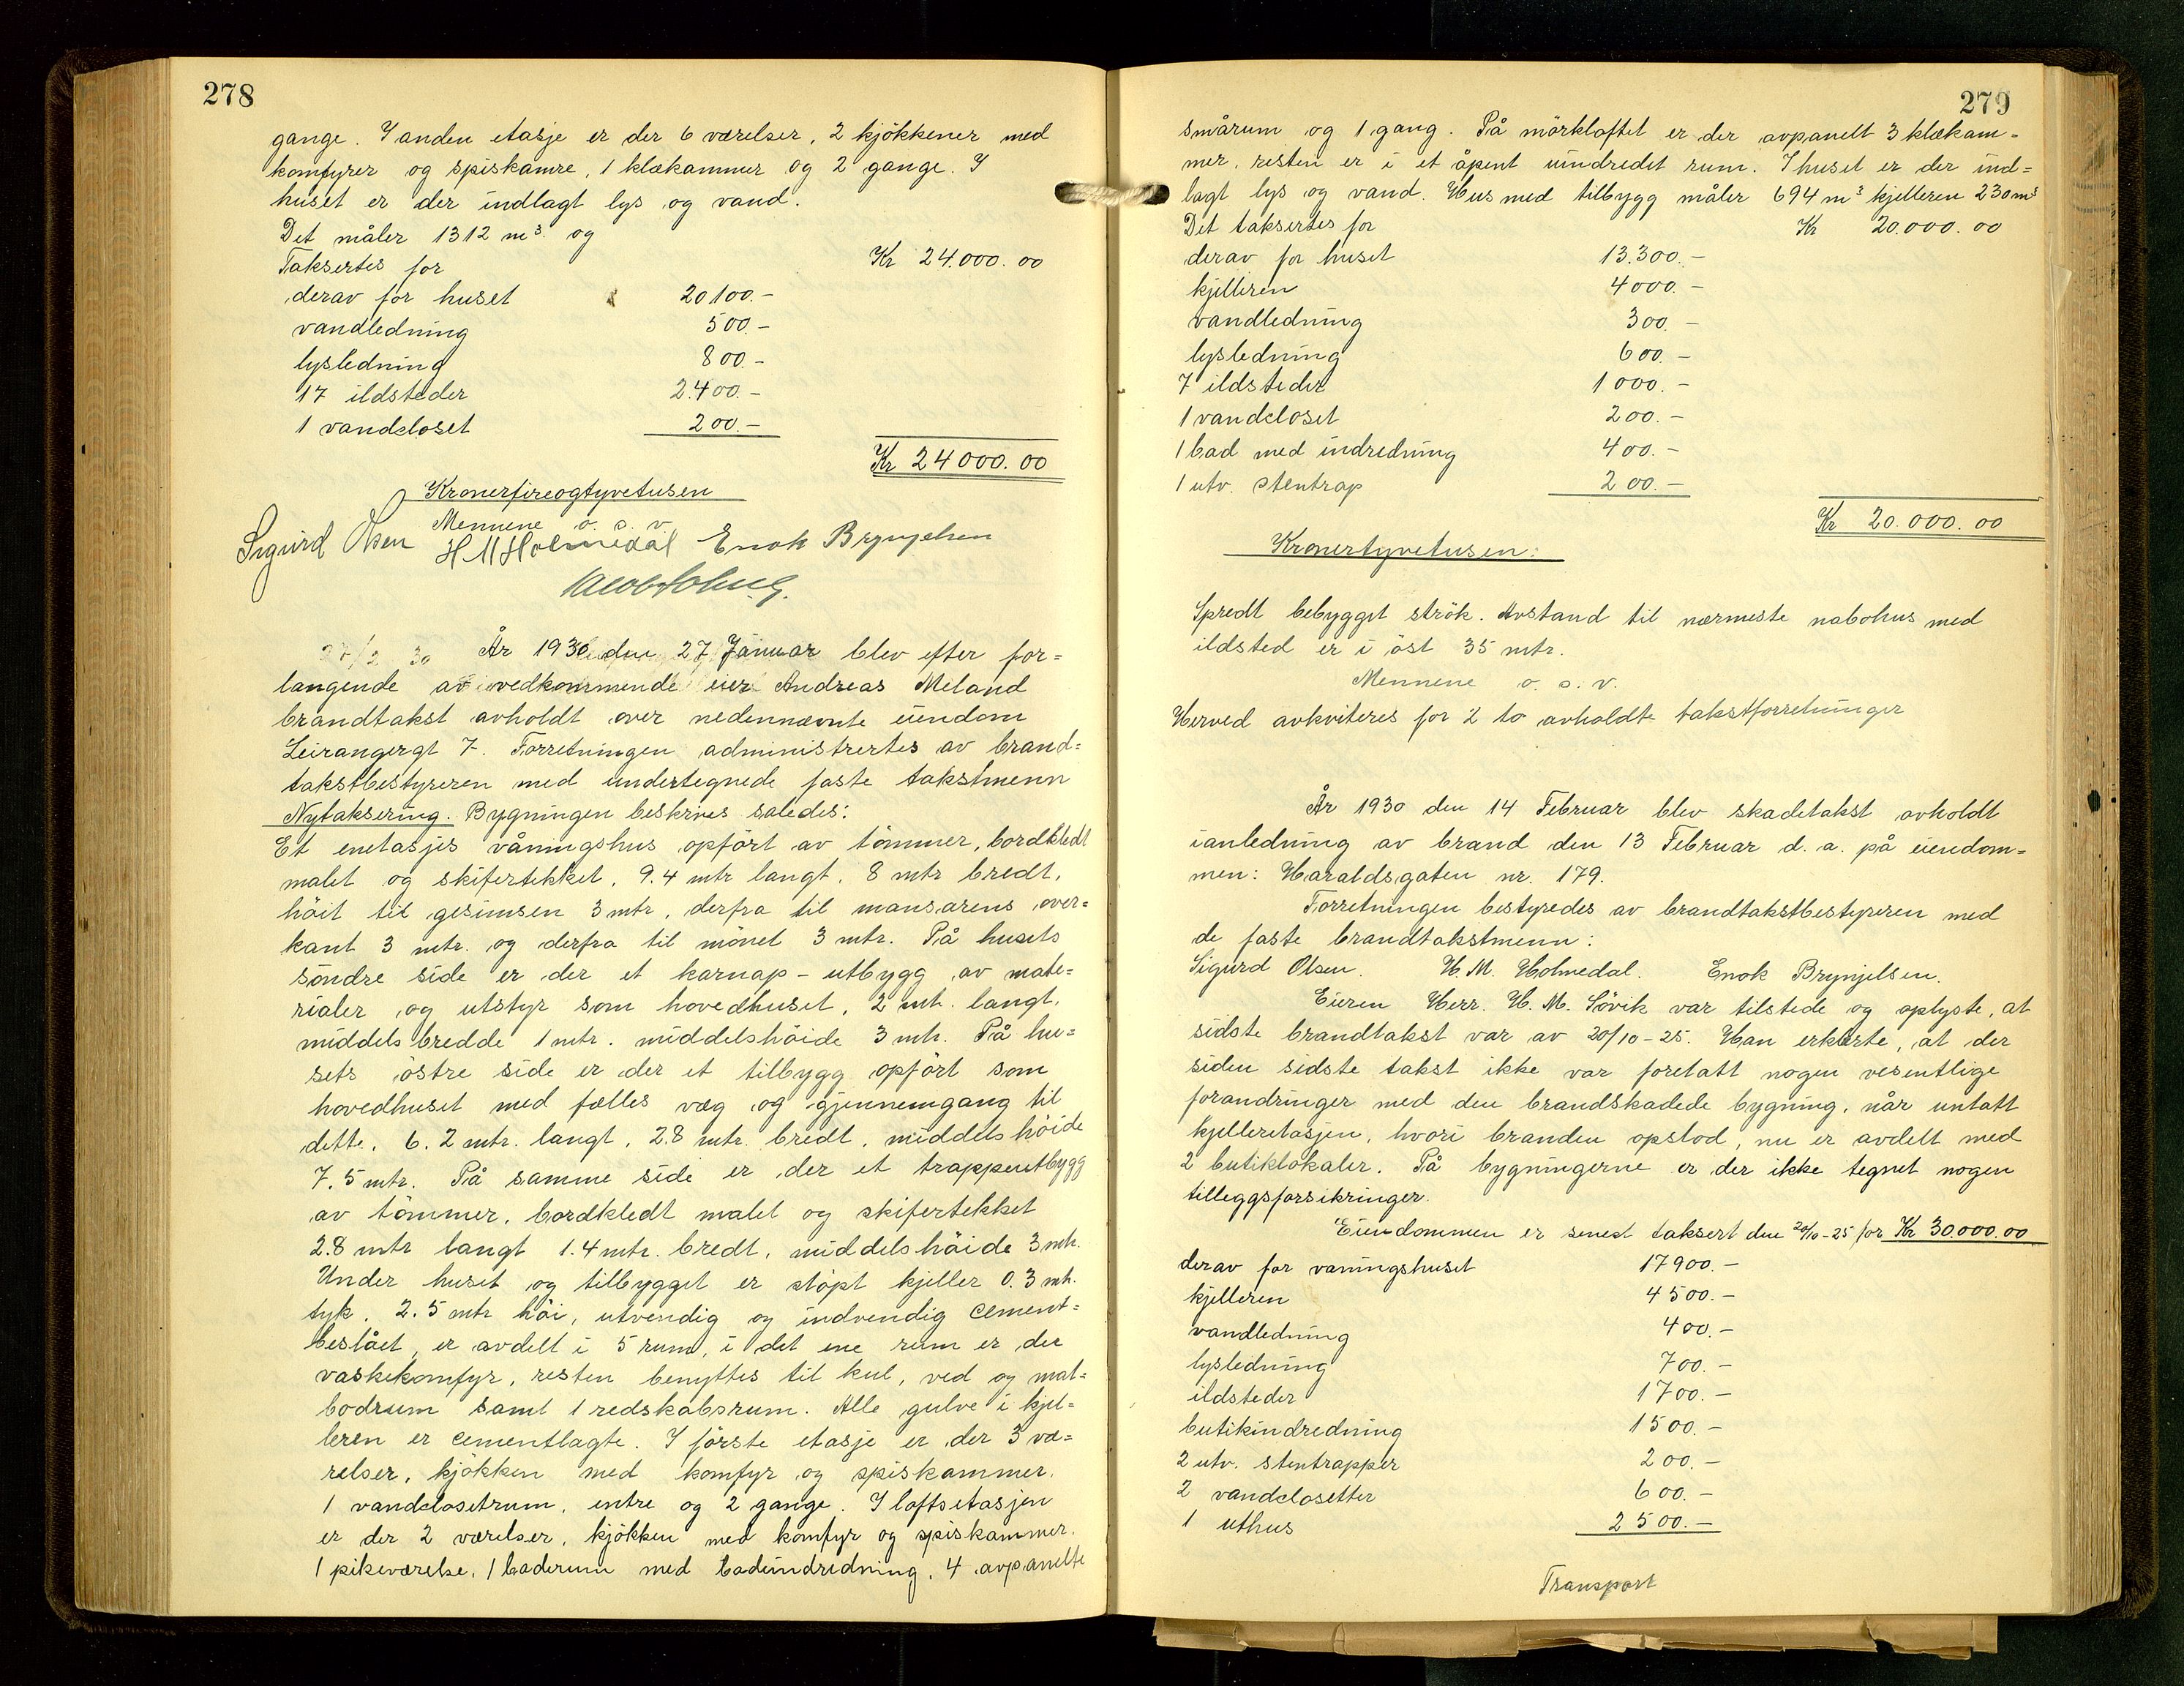 278
gange. I anden etasje er der 6 værelser, 2 kjökkener med
komfyrer og spiskamre, 1 klækammer og 2 gange. I
huset er der indlagt lys og vand.
Det måler 1312 m³ og
Taksertes for Kr 24.000.00
derav for huset 20100.-
vandledning 500.-
lysledning 800.-
17 ildsteder 2.400.-
1 vandcloset 200.-
Kr 24000.00
Kronerfireogtyvetusen
Mennene o. s. v.
Sigurd Olsen H M Holmedal Enok Brynjelsen
27/2 30 År 1930 den 27 Januar blev efter for=
langende av vedkommende eier Andreas Meland
brandtakst avholdt over nedennævnte eiendom
Leirangergt 7. Forretningen administrertes av brand=
takstbestyreren med undertegnede faste takstmenn
Nytaksering. Bygningen beskrives saledes:
Et enetasjes våningshus opfört av tömmer, bordkledt
malet og skifertekket, 9.4 mtr langt, 8 mtr bredt,
höit til gesimsen 3 mtr, derfra til mansarens over=
kant 3 mtr. og derfra til mönet 3 mtr. På husets
söndre side er der et karnap-utbygg av mate=
rialer og utstyr som hovedhuset, 2 mtr. langt,
middels bredde 1 mtr. middelshöide 3 mtr. På hu=
sets östre side er der et tilbygg opfört som
hovedhuset med fælles væg og gjennemgang til
dette, 6.2 mtr. langt, 2.8 mtr. bredt, middels höide
7.5 mtr. På samme side er der et trappeutbygg
av tömmer, bordkledt malet og skifertekket
2.8 mtr langt 1.4 mtr. bredt, middels höide 3 mtr.
Under huset og tilbygget er stöpt kjeller 0.3 mtr.
tyk, 2.5 mtr höi, utvendig og indvendig cement=
beslået, er avdelt i 5 rum, i det ene rum er der
vaskekomfyr, resten benyttes til kul, ved og mat=
bodrum samt 1 redskabsrum. Alle gulve i kjel=
leren er cementlagte. I förste etasje er der 3 væ=
relser, kjökken med komfyr og spiskammer,
1 vandclosetrum, entre og 2 gange. I loftsetasjen
er der 2 værelser, kjökken med komfyr og spiskammer.
1 pikeværelse, 1 baderum med badeindredning, 4 avpanelte
279
smårum og 1 gang. På mörkloftet er der avpanelt 3 klækam=
mer, resten er i et åpent uindredet rum. I huset er der ind=
lagt lys og vand. Hus med tilbygg måler 694 m³ kjelleren 230 m³
Det taksertes for Kr 20.000.00
derav for huset 13.300.-
kjelleren 4000.-
vandledning 300.-
lysledning 600.-
7 ildsteder 1000.-
1 vandcloset 200.-
1 bad med indredning 400.-
1 utv. stentrap 200.-
Kr 20.000.00
Kronertyvetusen:
Spredt bebygget strök. Avstand til nærmeste nabohus med
ildsted er i öst 35 mtr.
Mennene o. s. v.
Herved avkviteres for 2 to avholdte takstforretninger
År 1930 den 14 Februar blev skadetakst avholdt
ianledning av brand den 13 Februar d. a. på eiendom=
men: Haraldsgaten nr. 179.
Forretningen bestyredes av brandtakstbestyreren med
de faste brandtakstmenn:
Sigurd Olsen. H M. Holmedal. Enok Brynjelsen.
Eieren Herr. H. M. Sövik var tilstede og oplyste, at
sidste brandtakst var av 20/10-25. Han erklærte, at der
siden sidste takst ikke var foretatt nogen vesentlige
forandringer med den brandskadede bygning, når untatt
kjelleretasjen, hvori branden opstod, nu er avdelt med
2 butiklokaler. På bygningerne er der ikke tegnet nogen
tilleggsforsikringer.
Eiendommen er senest taksert den 20/10-25 for Kr 30.000.00
derav for vaningshuset 17900.-
kjelleren 4500.-
vandledning 400.-
lysledning 700.-
ildsteder 1700.-
butikindredning 1500.-
2 utv. stentrapper 200.-
2 vandclosetter 600.-
1 uthus 2500.-
Transport